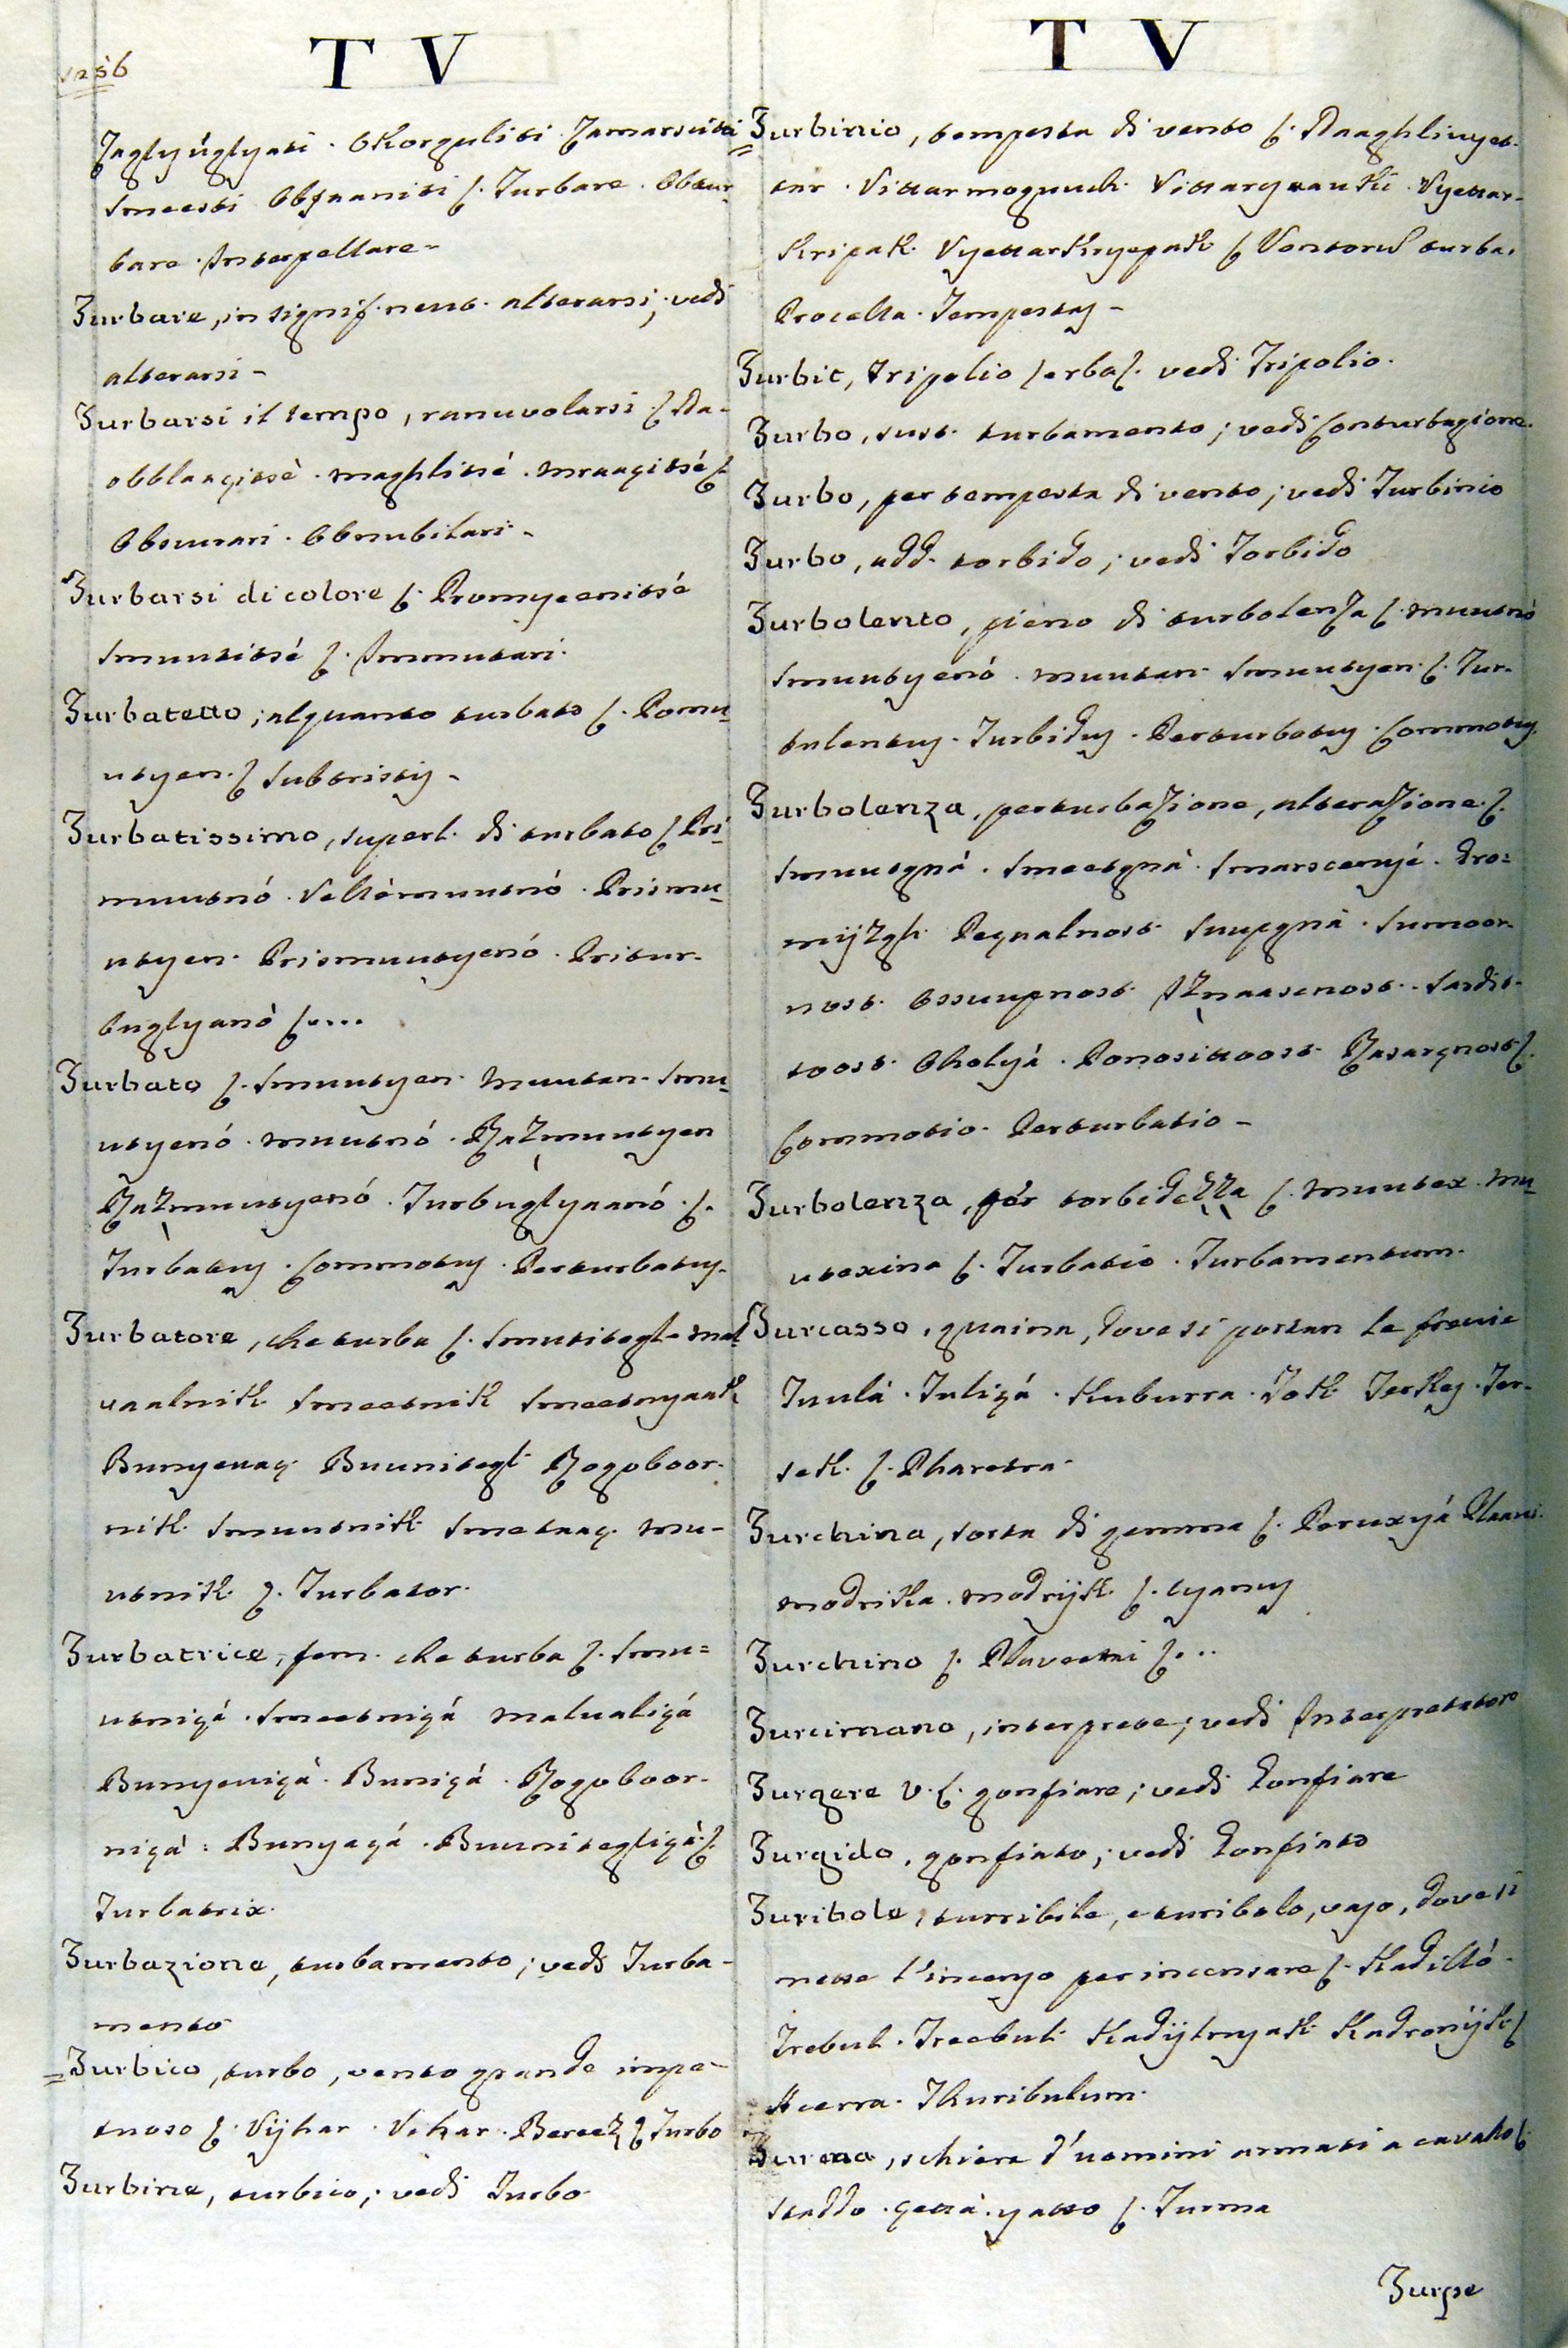 1256
T V
Zaglyúglyati. Okorguliti Zamarsciti
Smeesti Obznaniti ſ. Turbare. Obtur
bare. Interpellare-
Turbare, in signif. neut. alterarsi; vedi
alterarsi-
Turbarsi il tempo, ranuvolarsi ſ. Na-
obblaaçitsè. maghlitsé. mraaçitsé ſ.
Obscurari. Obnubilari-
Turbarsi di colore ſ. Promyeenitsé
Smuutitsé ſ. Immutari.
Turbatetto, alquanto turbato ſ. Pomu
utyen. ſ. Subtristis-
Turbatissimo, superl. di turbato ſ. Pri
muutnó. Vellèmuutnó. Prismu
utyen. Prismuutyenó. Pritur-
buglyanó ſ....
Turbato ſ. Smuutyen. muutan. Smu
utyenó. muutnó. Razmuutyen
Razmuutyenó. Turbuglyaanó. ſ.
Turbatus. Commotus. Perturbatus.
Turbatore, che turba ſ. Smutitegl. mal
uaalnik. Smeetnik Smeetnyaak
Bunyenaç. Buunitegl. Rogoboor-
nik. Smuutnik. Smetaaç. mu-
utnik. ſ. Turbator.
Turbatrice, fem. che turba ſ. Smu=
utniçá. Smeetniçá malualiçá
Bunyeniçá. Buniçá. Rogoboor-
niçá. Bunyaçá. Buunitegliçá. ſ.
Turbatrix.
Turbazione, turbamento; vedi Turba-
mento
Turbico, turbo, vento grande impe-
tuoso ſ. Vijhar. Vihar. Bereez ſ. Turbo
Turbine, turbico; vedi Turbo
T V
Turbinio, tempesta di vento ſ. Naaghlivyet-
tar. Vittarmoguuch. Vittargnauki. Vyettar-
kripak. Vyettarkryepak ſ. Ventorus turba.
Procella. Tempestas-
Turbit, tripolio ſerbaſ. vedi Tripolio.
Turbo, sust. turbamento; vedi Conturbagione.
Turbo, per tempesta di vento; vedi Turbinio
Turbo, add. torbido; vedi Torbido
Turbolento, pieno di turbolenza ſ. muutnó
Smuutyenó. muutan. Smuutyen. ſ. Tur-
bulentus. Turbidus. Perturbatus. Commotus.
Turbolenza, perturbazione, alterazione. ſ.
Smuutgná. Smeetgná. Smarscenyé. Pro=
mijzgh. Pegnalnost. Suupgná. Sumoor-
nost. Ossuupnost. Iznaasenost. Sardit-
toost. Oholyá. Ponosittoost. Razargnost ſ.
Commotio. Perturbatio-
Turbolenza, pér torbidezza ſ. muutex. mu
utexina ſ. Turbatio. Turbamentum.
Turcasso, guaina, dove si portan le freccie
Tuulá. Tuliçá. Kuburra. Tok. Terkes. Ter-
setk. ſ. Pharetra.
Turchina, sorta di gemma ſ. Peruxyá Plaavi.
modrika. modrijk. ſ. Cyanus
Turchino ſ. Plaveetni ſ...
Turcimano, interprete; vedi Interpretatore
Turgere V. L. gonfiare; vedi Gonfiare
Turgido, gonfiato; vedi Gonfiato
Turibole, turribile, e turibolo, vaso, dove si
mette l'incenso per incensare ſ. Kadilló.
Trebul. Treebul. Kadijlnyak. Kadronijk ſ.
Acerra. Thuribulum.
Turma, schiera d'uomini armati a cavallo ſ.
Staddo. çettá. yatto ſ. Turma
Turpe